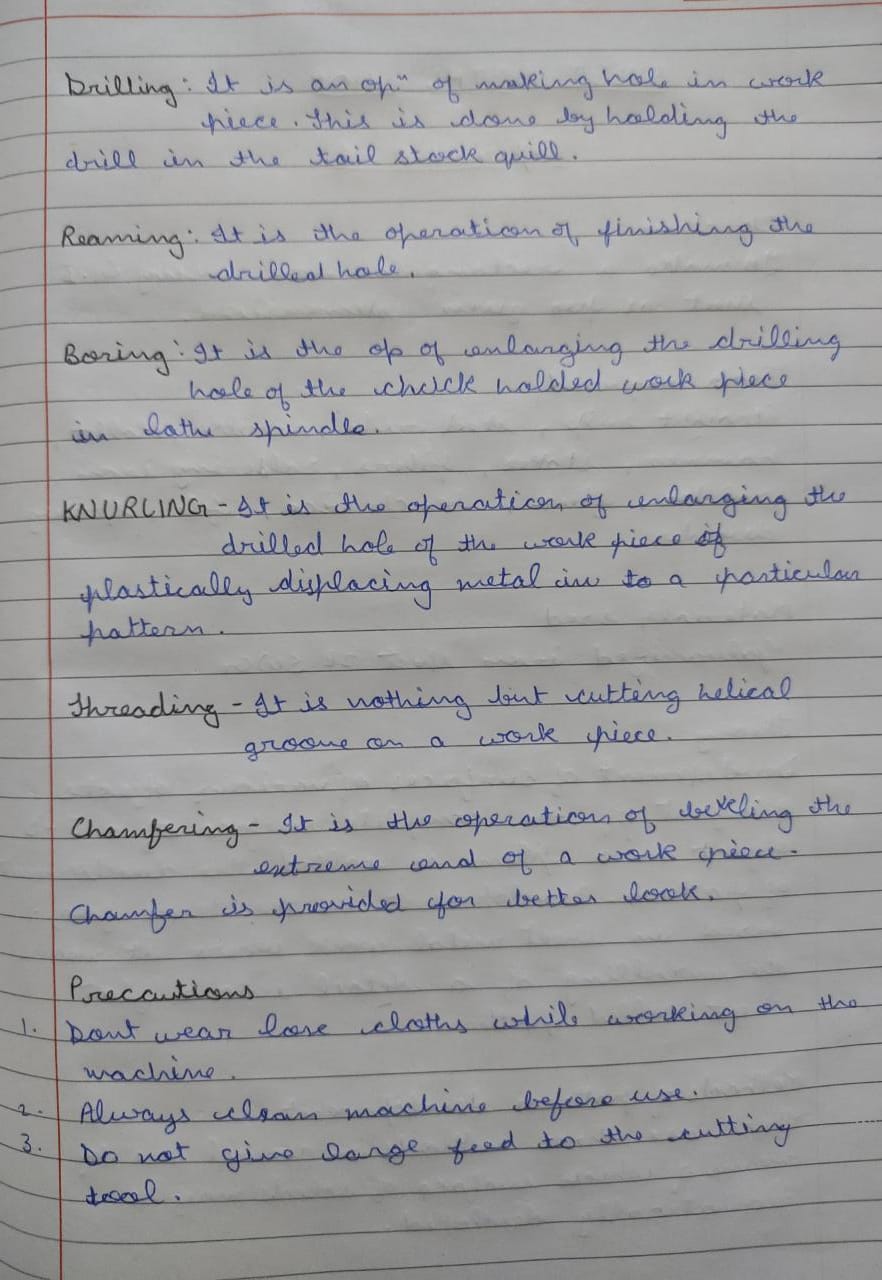 Drilling: It is an opⁿ of making hole in work
piece. This is done by holding the
drill in the tail stock quill.
Reaming: It is the operation of finishing the
drilled hole.
Boring: It is the op of enlarging the drilling
hole of the chuck holded work piece
in lathe spindle.
KNURLING - It is the operation of enlarging the
drilled hole of the work piece
plastically displacing metal in to a particular
pattern.
Threading - It is nothing but cutting helical
groove on a work piece.
Chamfering - It is the operation of beveling the
extreme end of a work piece.
Chamfer is provided for better look.
Precautions
1. Dont wear lose cloths while working on the
machine.
2. Always clean machine before use.
3. Do not give large feed to the cutting
tool.